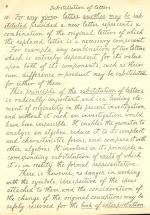 8 Substitution of letters
10. For any given letter another may be sub-
stituted provided a new letter represents a
combination of the original letters of which
the replaced letter is a necessary component.
For example, any combination of two letters
which is entirely dependent for its value
upon both of its components, such as their
sum, difference or product may be substituted
for either of them.
This principle of the substitution of letters
is radically important, and is a leading ele-
ment of originality in the present investigation,
and without it such an investigation would
have been impossible. It enables the geometer to
analyze an algebra, reduce it to its simplest
and characteristic forms, and compare it with
other algebras. It involves in its principle a
corresponding substitution of units of which
it is in reality the formal representative.
There is, however, no danger in working
with the symbols, irrespective of the ideas
attached to them, and the consideration of
the change of the original conceptions may be
safely reserved for the book of interpretation